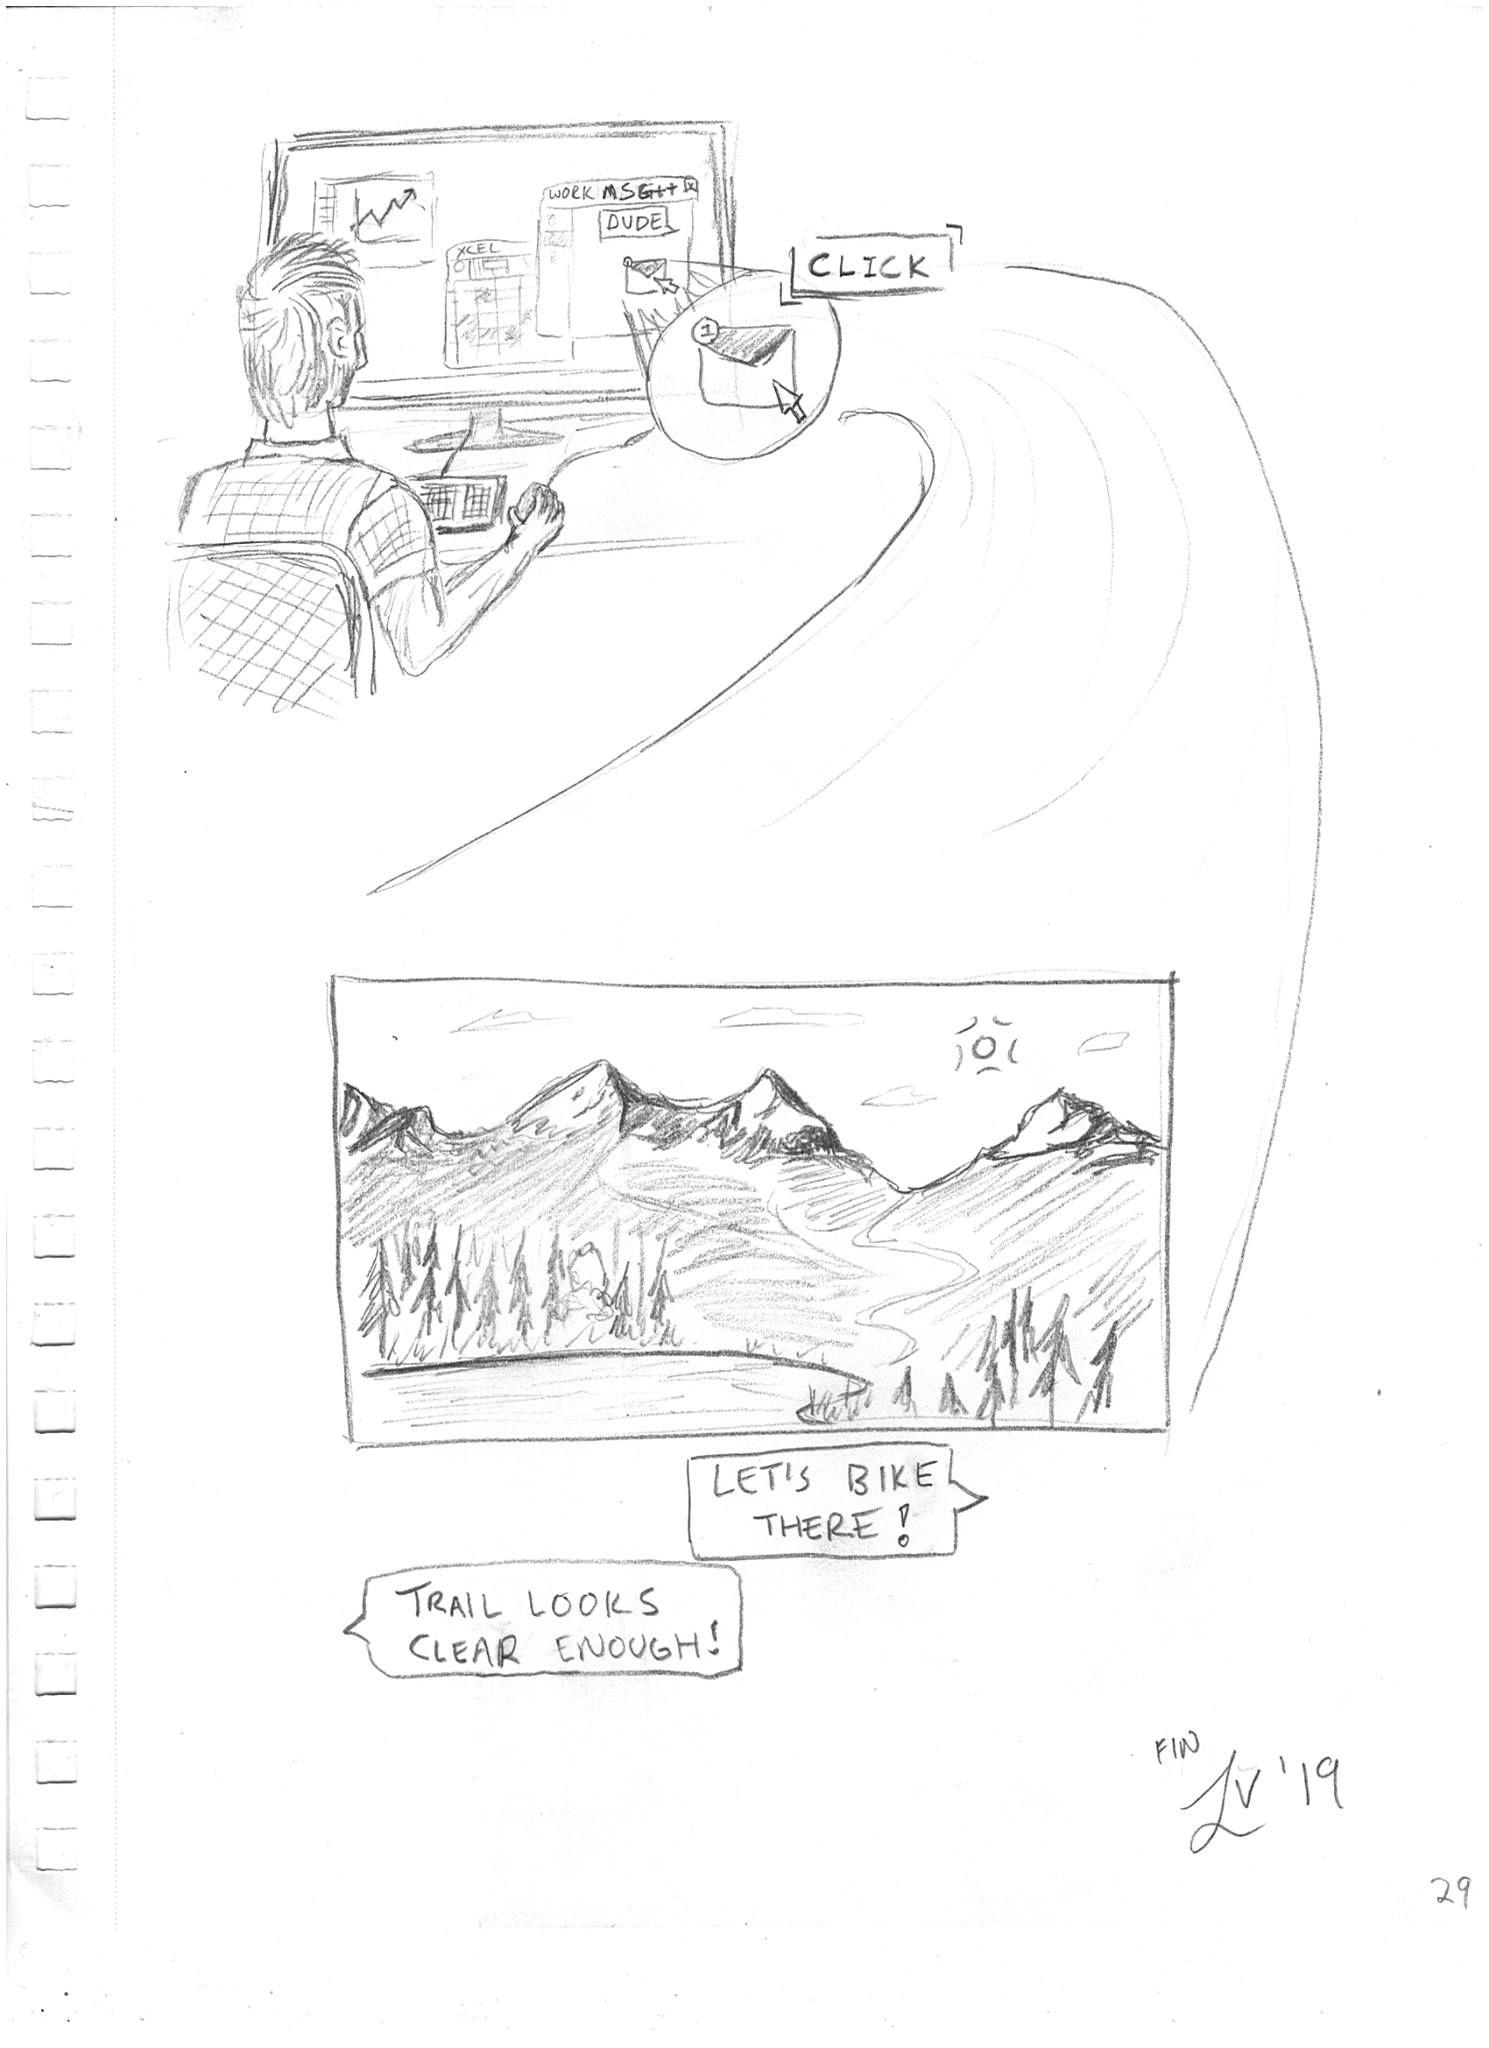 WORK MSG++ X
DUDE
XCEL
CLICK
1
LET'S BIKE
THERE!
TRAIL LOOKS
CLEAR ENOUGH!
FIN
LV '19
29